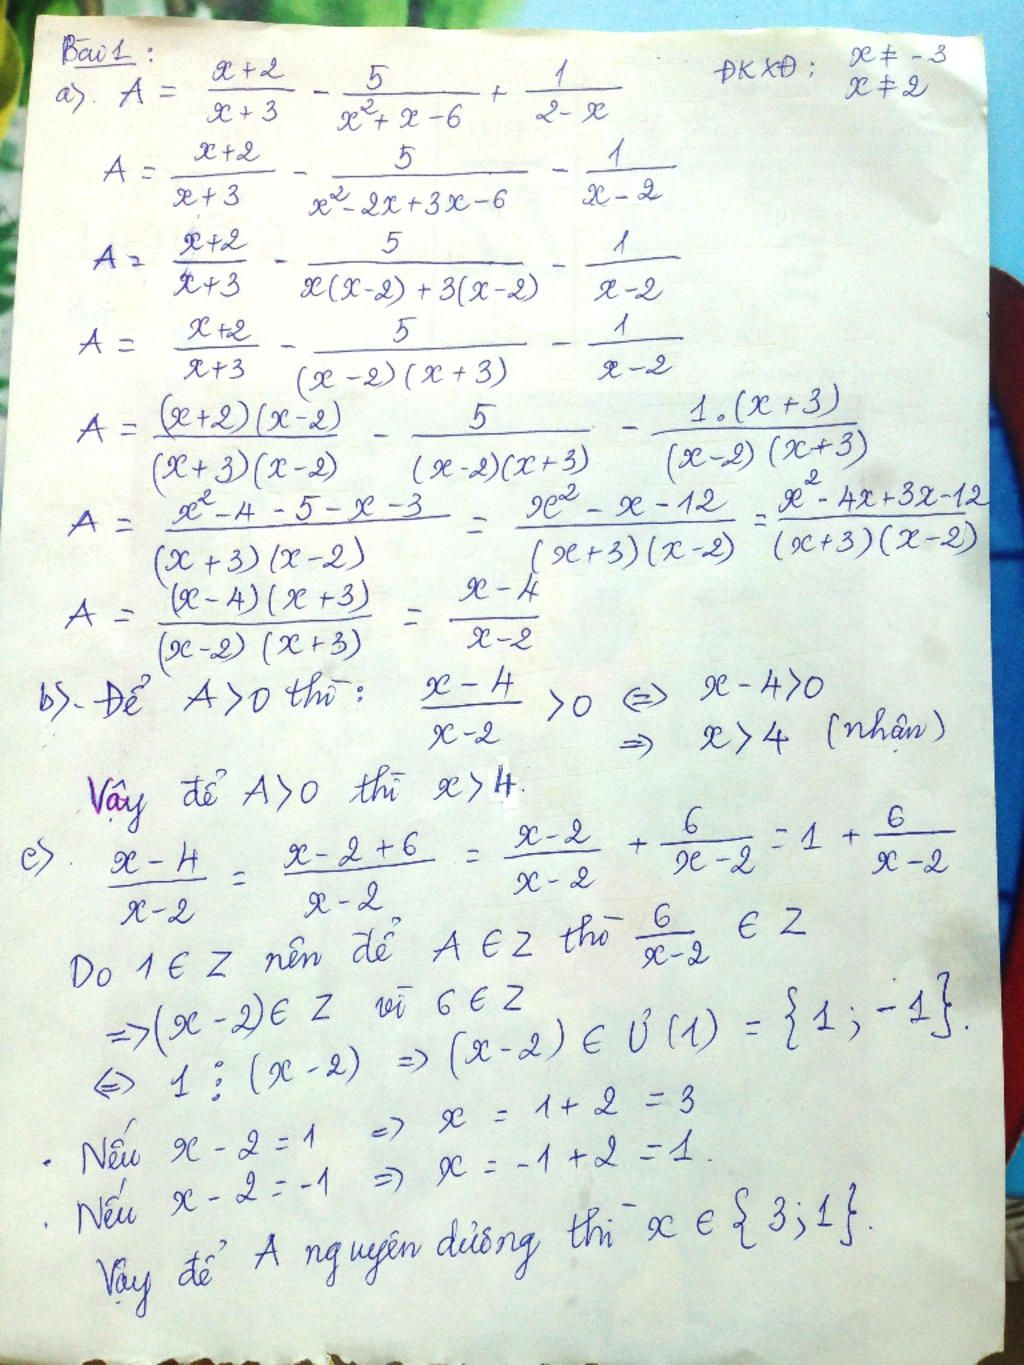 Bài 1 :
a). A = \frac{x+2}{x+3} - \frac{5}{x^2+x-6} + \frac{1}{2-x} ĐKXĐ : x ≠ -3
x ≠ 2
A = \frac{x+2}{x+3} - \frac{5}{x^2-2x+3x-6} - \frac{1}{x-2}
A = \frac{x+2}{x+3} - \frac{5}{x(x-2)+3(x-2)} - \frac{1}{x-2}
A = \frac{x+2}{x+3} - \frac{5}{(x-2)(x+3)} - \frac{1}{x-2}
A = \frac{(x+2)(x-2)}{(x+3)(x-2)} - \frac{5}{(x-2)(x+3)} - \frac{1.(x+3)}{(x-2)(x+3)}
A = \frac{x^2-4-5-x-3}{(x+3)(x-2)} = \frac{x^2-x-12}{(x+3)(x-2)} = \frac{x^2-4x+3x-12}{(x+3)(x-2)}
A = \frac{(x-4)(x+3)}{(x-2)(x+3)} = \frac{x-4}{x-2}
b). - Để A>0 thì : \frac{x-4}{x-2} >0 ⇔ x-4>0
⇒ x>4 (nhận)
Vậy để A>0 thì x>4.
c). \frac{x-4}{x-2} = \frac{x-2+6}{x-2} = \frac{x-2}{x-2} + \frac{6}{x-2} = 1 + \frac{6}{x-2}
Do 1 ∈ Z nên để A ∈ Z thì \frac{6}{x-2} ∈ Z
⇒ (x-2) ∈ Z vì 6 ∈ Z
⇔ 1 ⋮ (x-2) ⇒ (x-2) ∈ Ư(1) = {1 ; -1}.
. Nếu x-2=1 ⇒ x = 1+2 = 3
. Nếu x-2=-1 ⇒ x = -1+2 = 1.
Vậy để A nguyên dương thì x ∈ {3;1}.